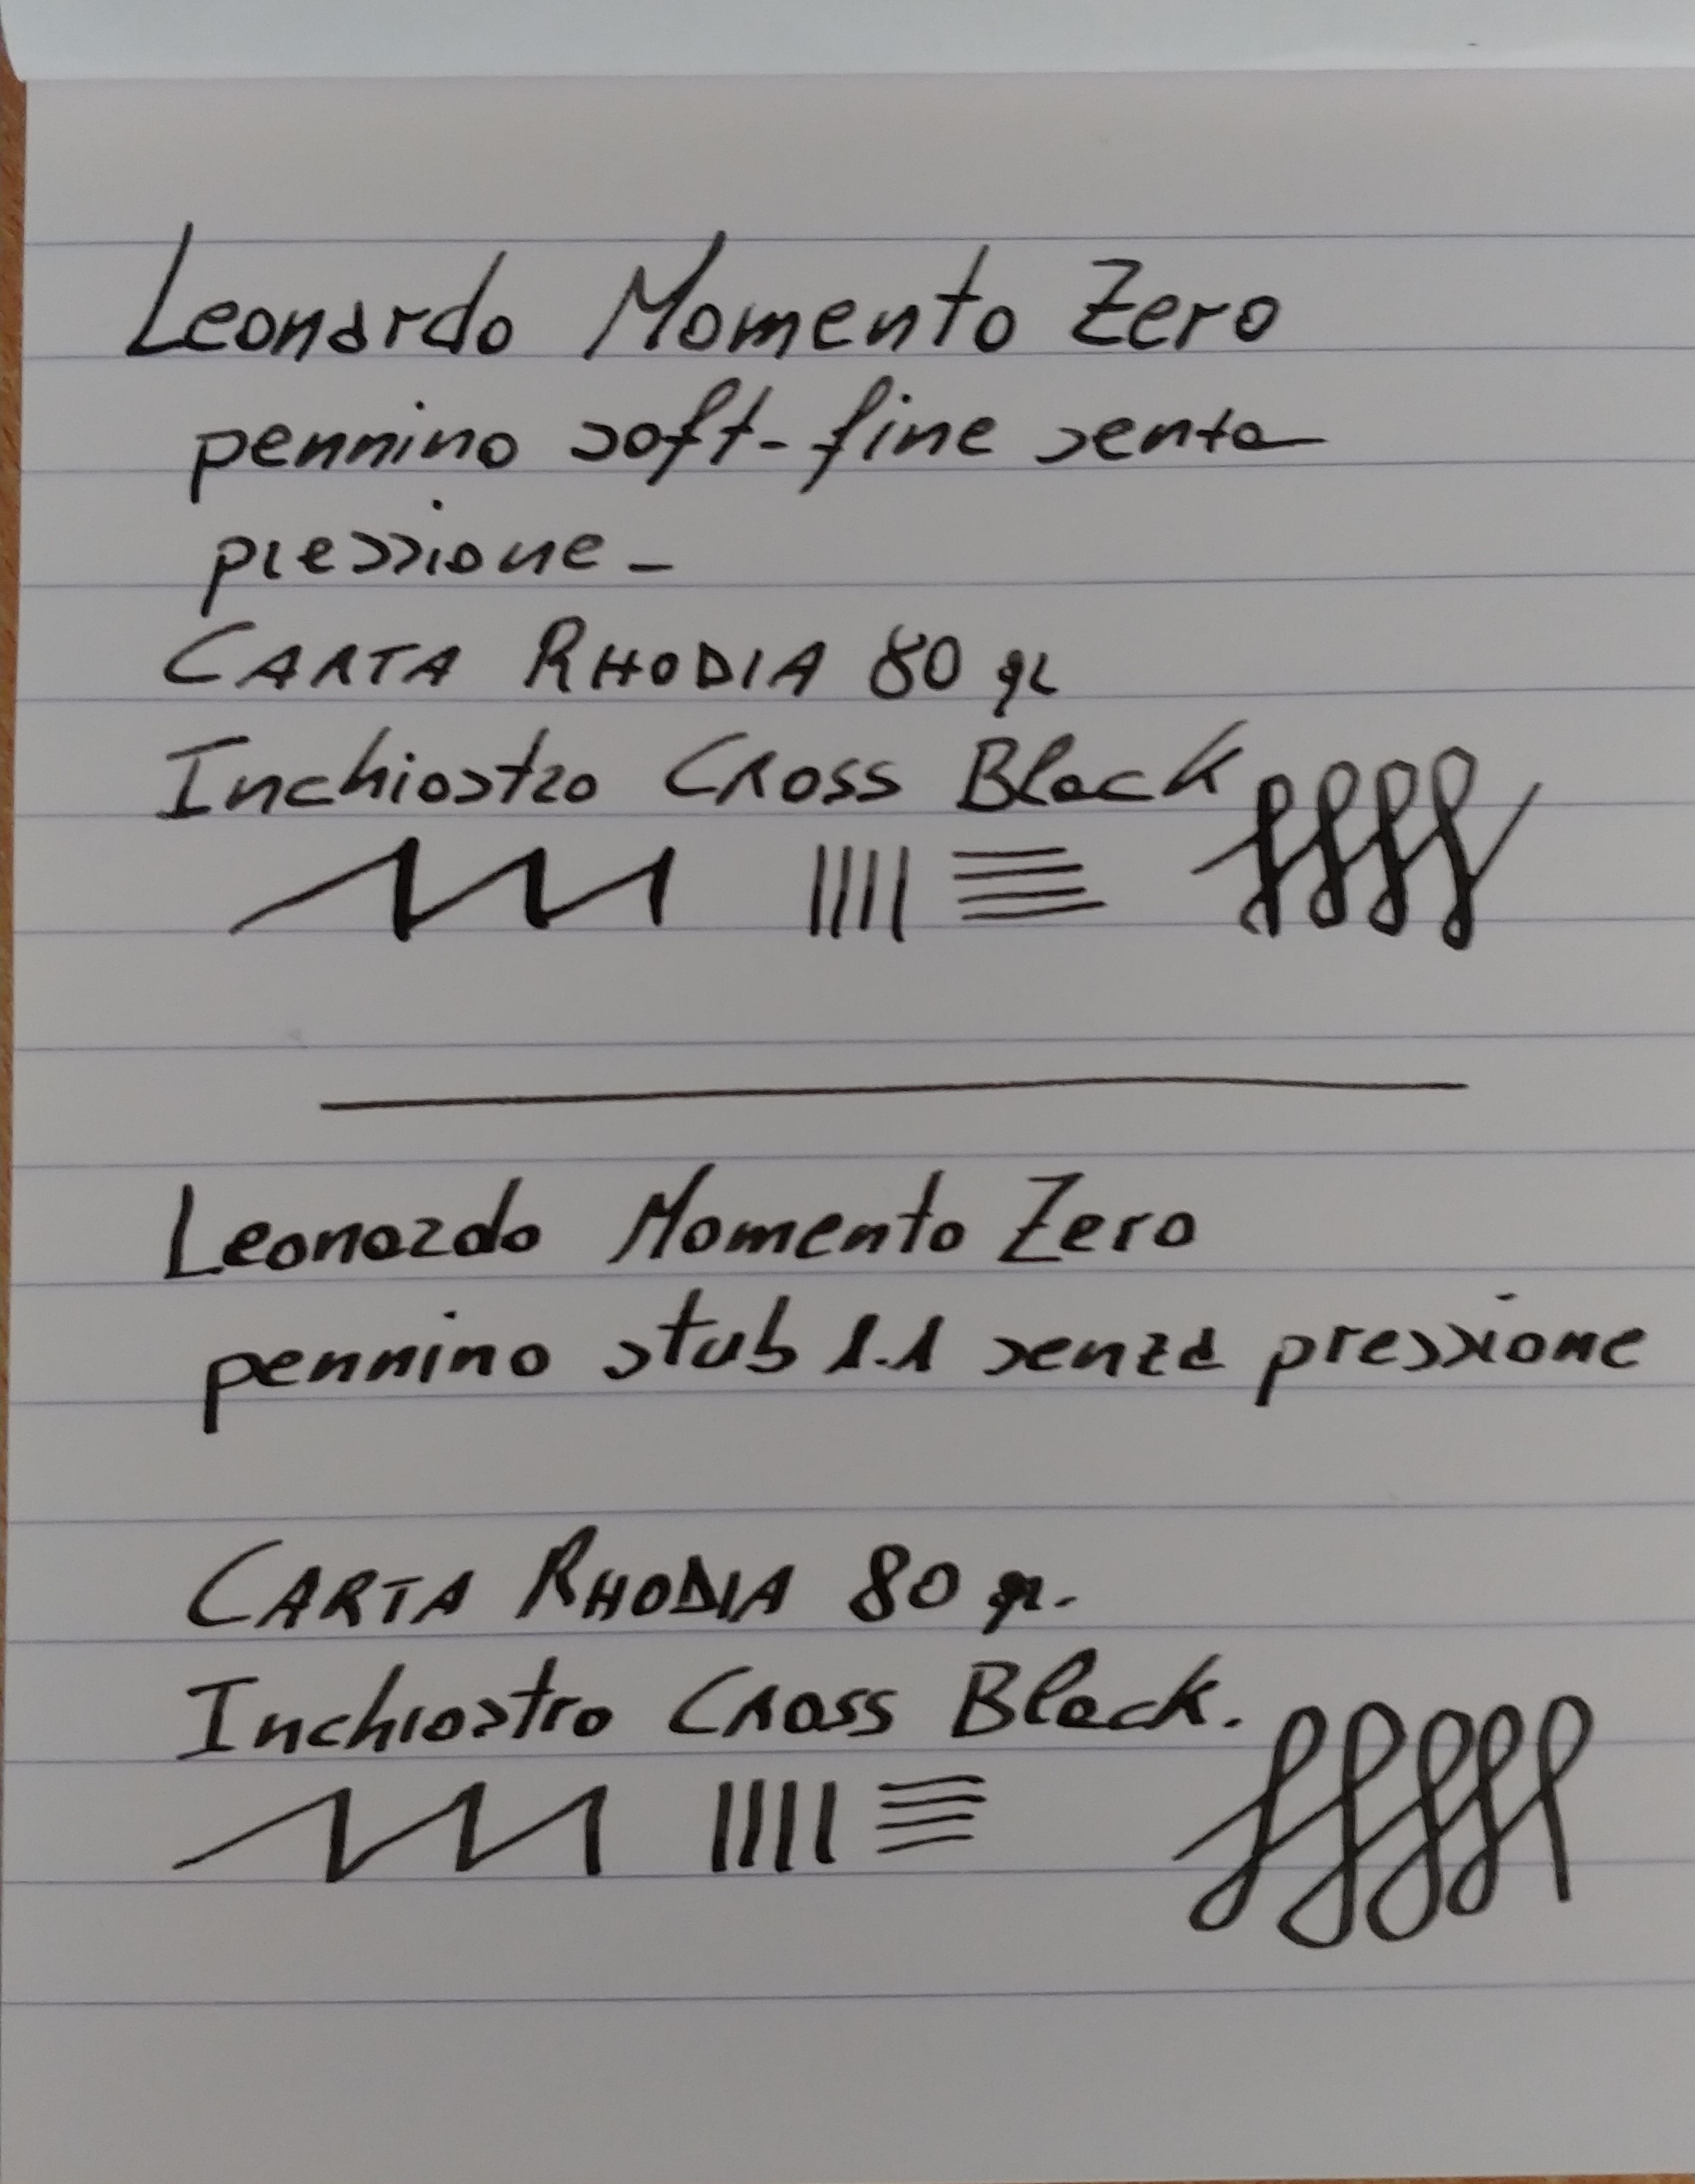 Leonardo Momento Zero
pennino soft-fine senza
pressione -
CARTA RHODIA 80 gr
Inchiostro CROSS Black
Leonardo Momento Zero
pennino stub 1.1 senza pressione
CARTA RHODIA 80 gr.
Inchiostro CROSS Black.